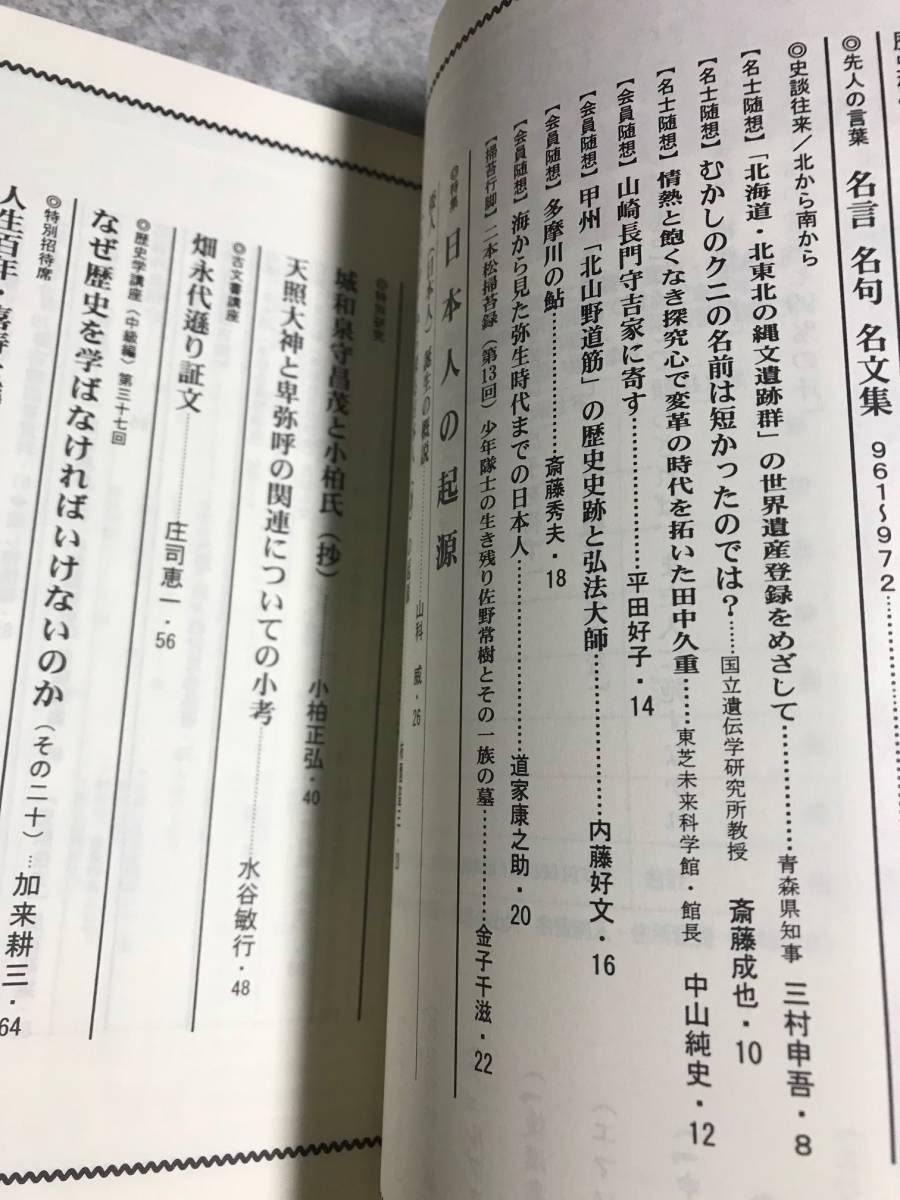 ◎先人の言葉　名言 名句 名文集　961〜972…………
◎史談往来／北から南から
【名士随想】「北海道・北東北の縄文遺跡群」の世界遺産登録をめざして…………青森県知事　三村申吾・8
【名士随想】むかしのクニの名前は短かったのでは？……国立遺伝学研究所教授　斎藤成也・10
【名士随想】情熱と飽くなき探究心で変革の時代を拓いた田中久重……東芝未来科学館・館長　中山純史・12
【会員随想】山崎長門守吉家に寄す…………平田好子・14
【会員随想】甲州「北山野道筋」の歴史史跡と弘法大師…………内藤好文・16
【会員随想】多摩川の鮎…………斎藤秀夫・18
【会員随想】海から見た弥生時代までの日本人…………道家康之助・20
【掃苔行脚】二本松掃苔録（第13回）少年隊士の生き残り佐野常樹とその一族の墓…………金子千滋・22
◎特集　日本人の起源
人（日本人）誕生の概説…………山科　威・26
◎特別研究
城和泉守昌茂と小柏氏（抄）…………小柏正弘・40
天照大神と卑弥呼の関連についての小考…………水谷敏行・48
◎古文書講座
畑永代遜り証文…………庄司恵一・56
◎歴史学講座（中級編）第三十七回
なぜ歴史を学ばなければいけないのか（その二十）…加来耕三・64
◎特別招待席
人生百年・